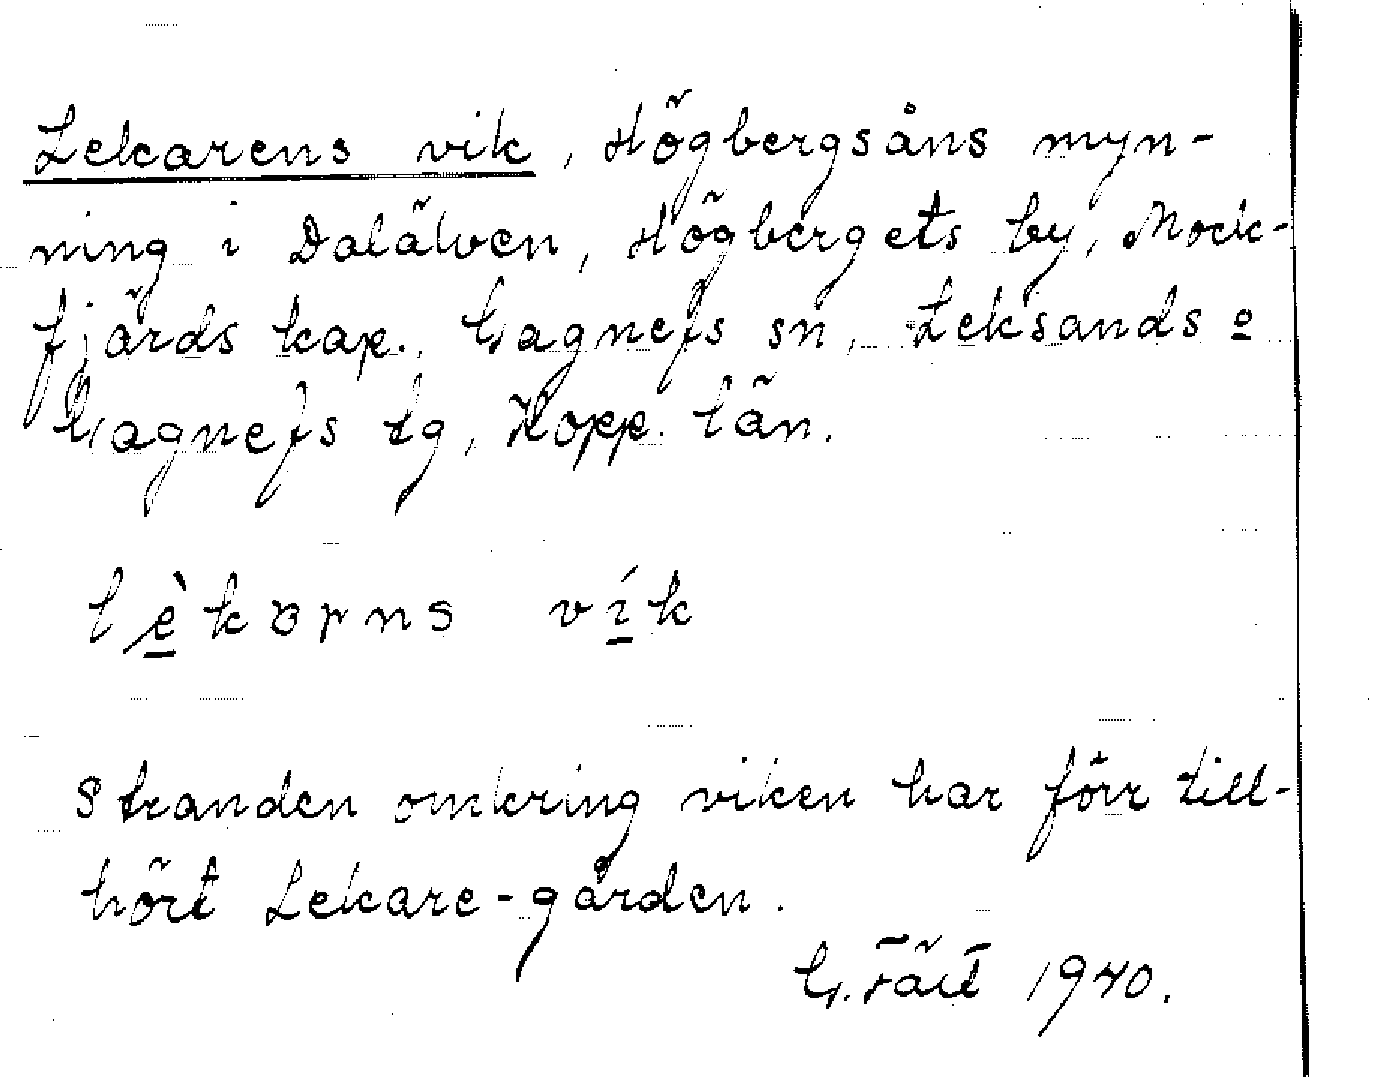 Lekarens vik, Högbergsåns myn-
ning i Dalälven, Högbergets by, Mock-
fjärds kap., Gagnefs sn, Leksands o
Gagnefs tg, Kopp. län.
vík
Stranden omkring viken har förr till-
hört Lekare-gården.
G. Fält 1940.